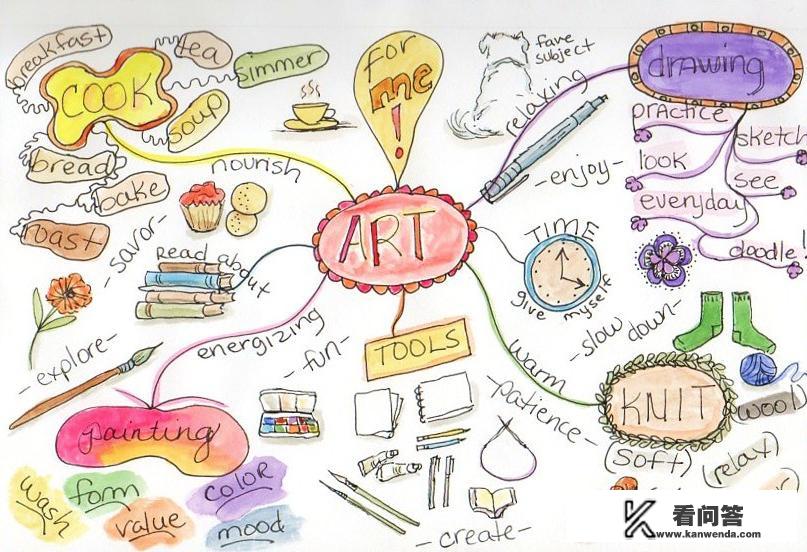 breakfast
tea
simmer
COOK
soup
bread
bake
roast
nourish
-savor-
FOR
me
!
fave
subject
relaxing
drawing
practice
sketch
look
see
everyday
doodle!
-enjoy-
ART
TIME
give myself
-slow down-
Read about
-explore-
energizing
-fun-
TOOLS
warm
-patience-
KNIT
wool
(soft)
(relax)
painting
wash
form
value
color
mood
-create-
K
看问答
www.kanwenda.com